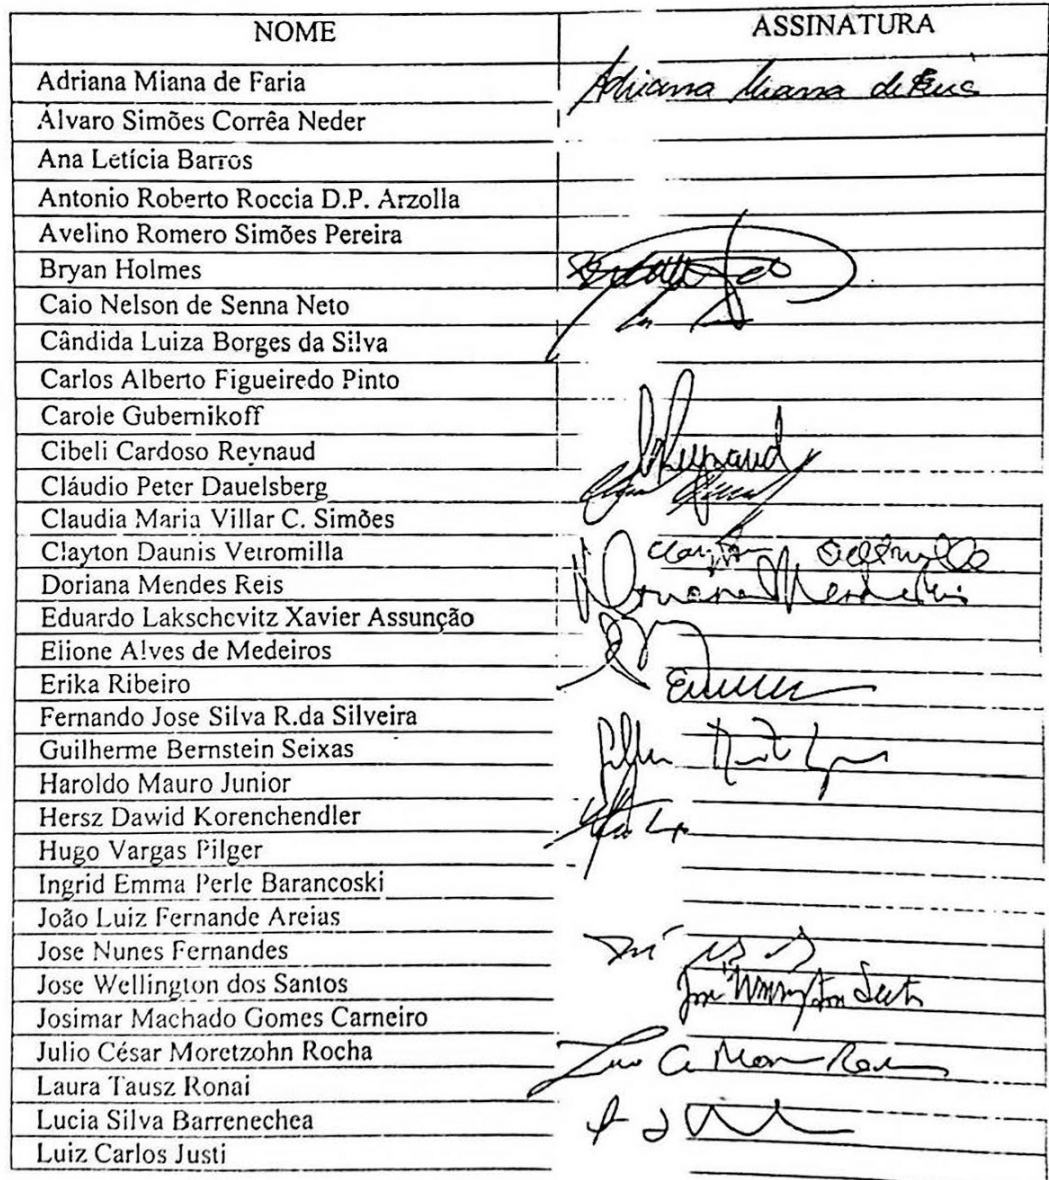 NOME ASSINATURA
Adriana Miana de Faria Adriana Miana de Faria
Álvaro Simões Corrêa Neder
Ana Letícia Barros
Antonio Roberto Roccia D.P. Arzolla
Avelino Romero Simões Pereira
Bryan Holmes
Caio Nelson de Senna Neto
Cândida Luiza Borges da Silva
Carlos Alberto Figueiredo Pinto
Carole Gubernikoff
Cibeli Cardoso Reynaud Reynaud
Cláudio Peter Dauelsberg
Claudia Maria Villar C. Simões
Clayton Daunis Vetromilla Clayton Vetromilla
Doriana Mendes Reis Doriana Mendes Reis
Eduardo Lakschevitz Xavier Assunção
Elione Alves de Medeiros
Erika Ribeiro
Fernando Jose Silva R.da Silveira
Guilherme Bernstein Seixas
Haroldo Mauro Junior
Hersz Dawid Korenchendler
Hugo Vargas Pilger
Ingrid Emma Perle Barancoski
João Luiz Fernande Areias
Jose Nunes Fernandes
Jose Wellington dos Santos José Wellington Santos
Josimar Machado Gomes Carneiro
Julio César Moretzohn Rocha
Laura Tausz Ronai
Lucia Silva Barrenechea
Luiz Carlos Justi